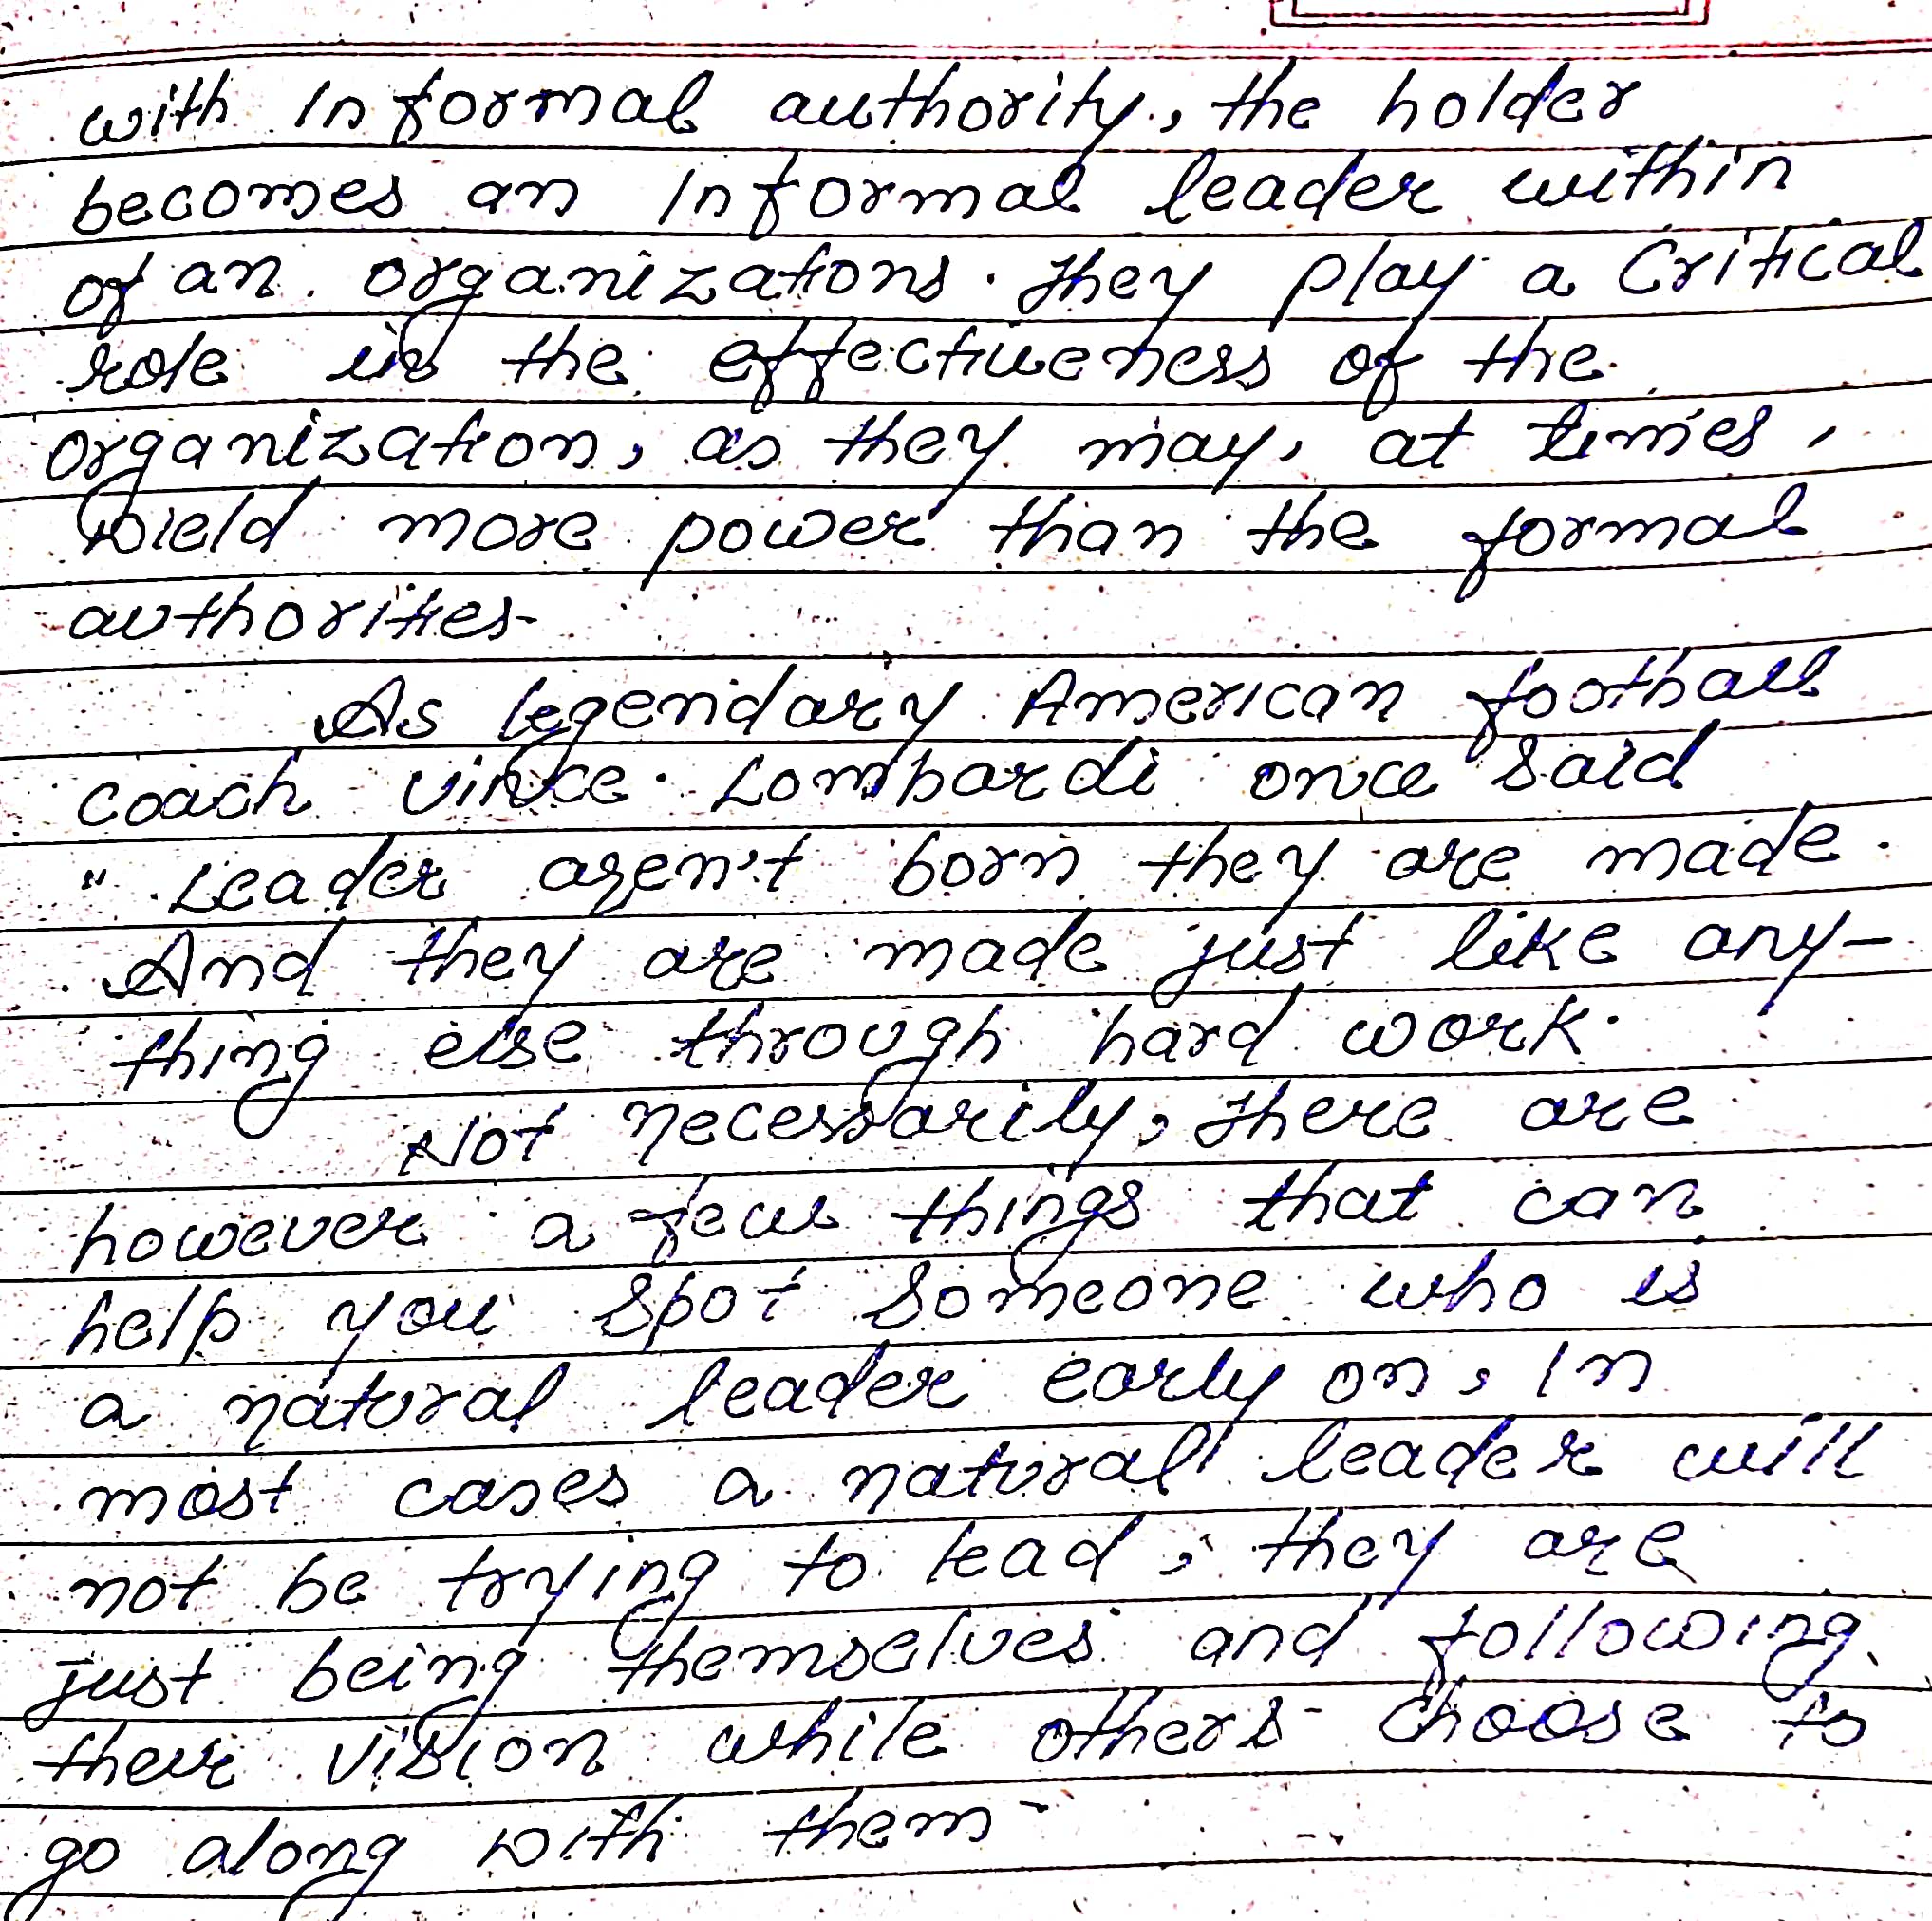 with Informal authority, the holder
becomes an Informal leader within
of an organizations. they play a critical
role in the effectiveness of the
organization, as they may, at times,
wield more power than the formal
authorities-
As legendary American football
coach Vince Lombardi once said
" Leader aren't born they are made.
And they are made just like any-
thing else through hard work.
Not necessarily, there are
however a few things that can
help you spot someone who is
a natural leader early on, In
most cases a natural leader will
not be trying to lead, they are
just being themselves and following
their vision while others choose to
go along with them-